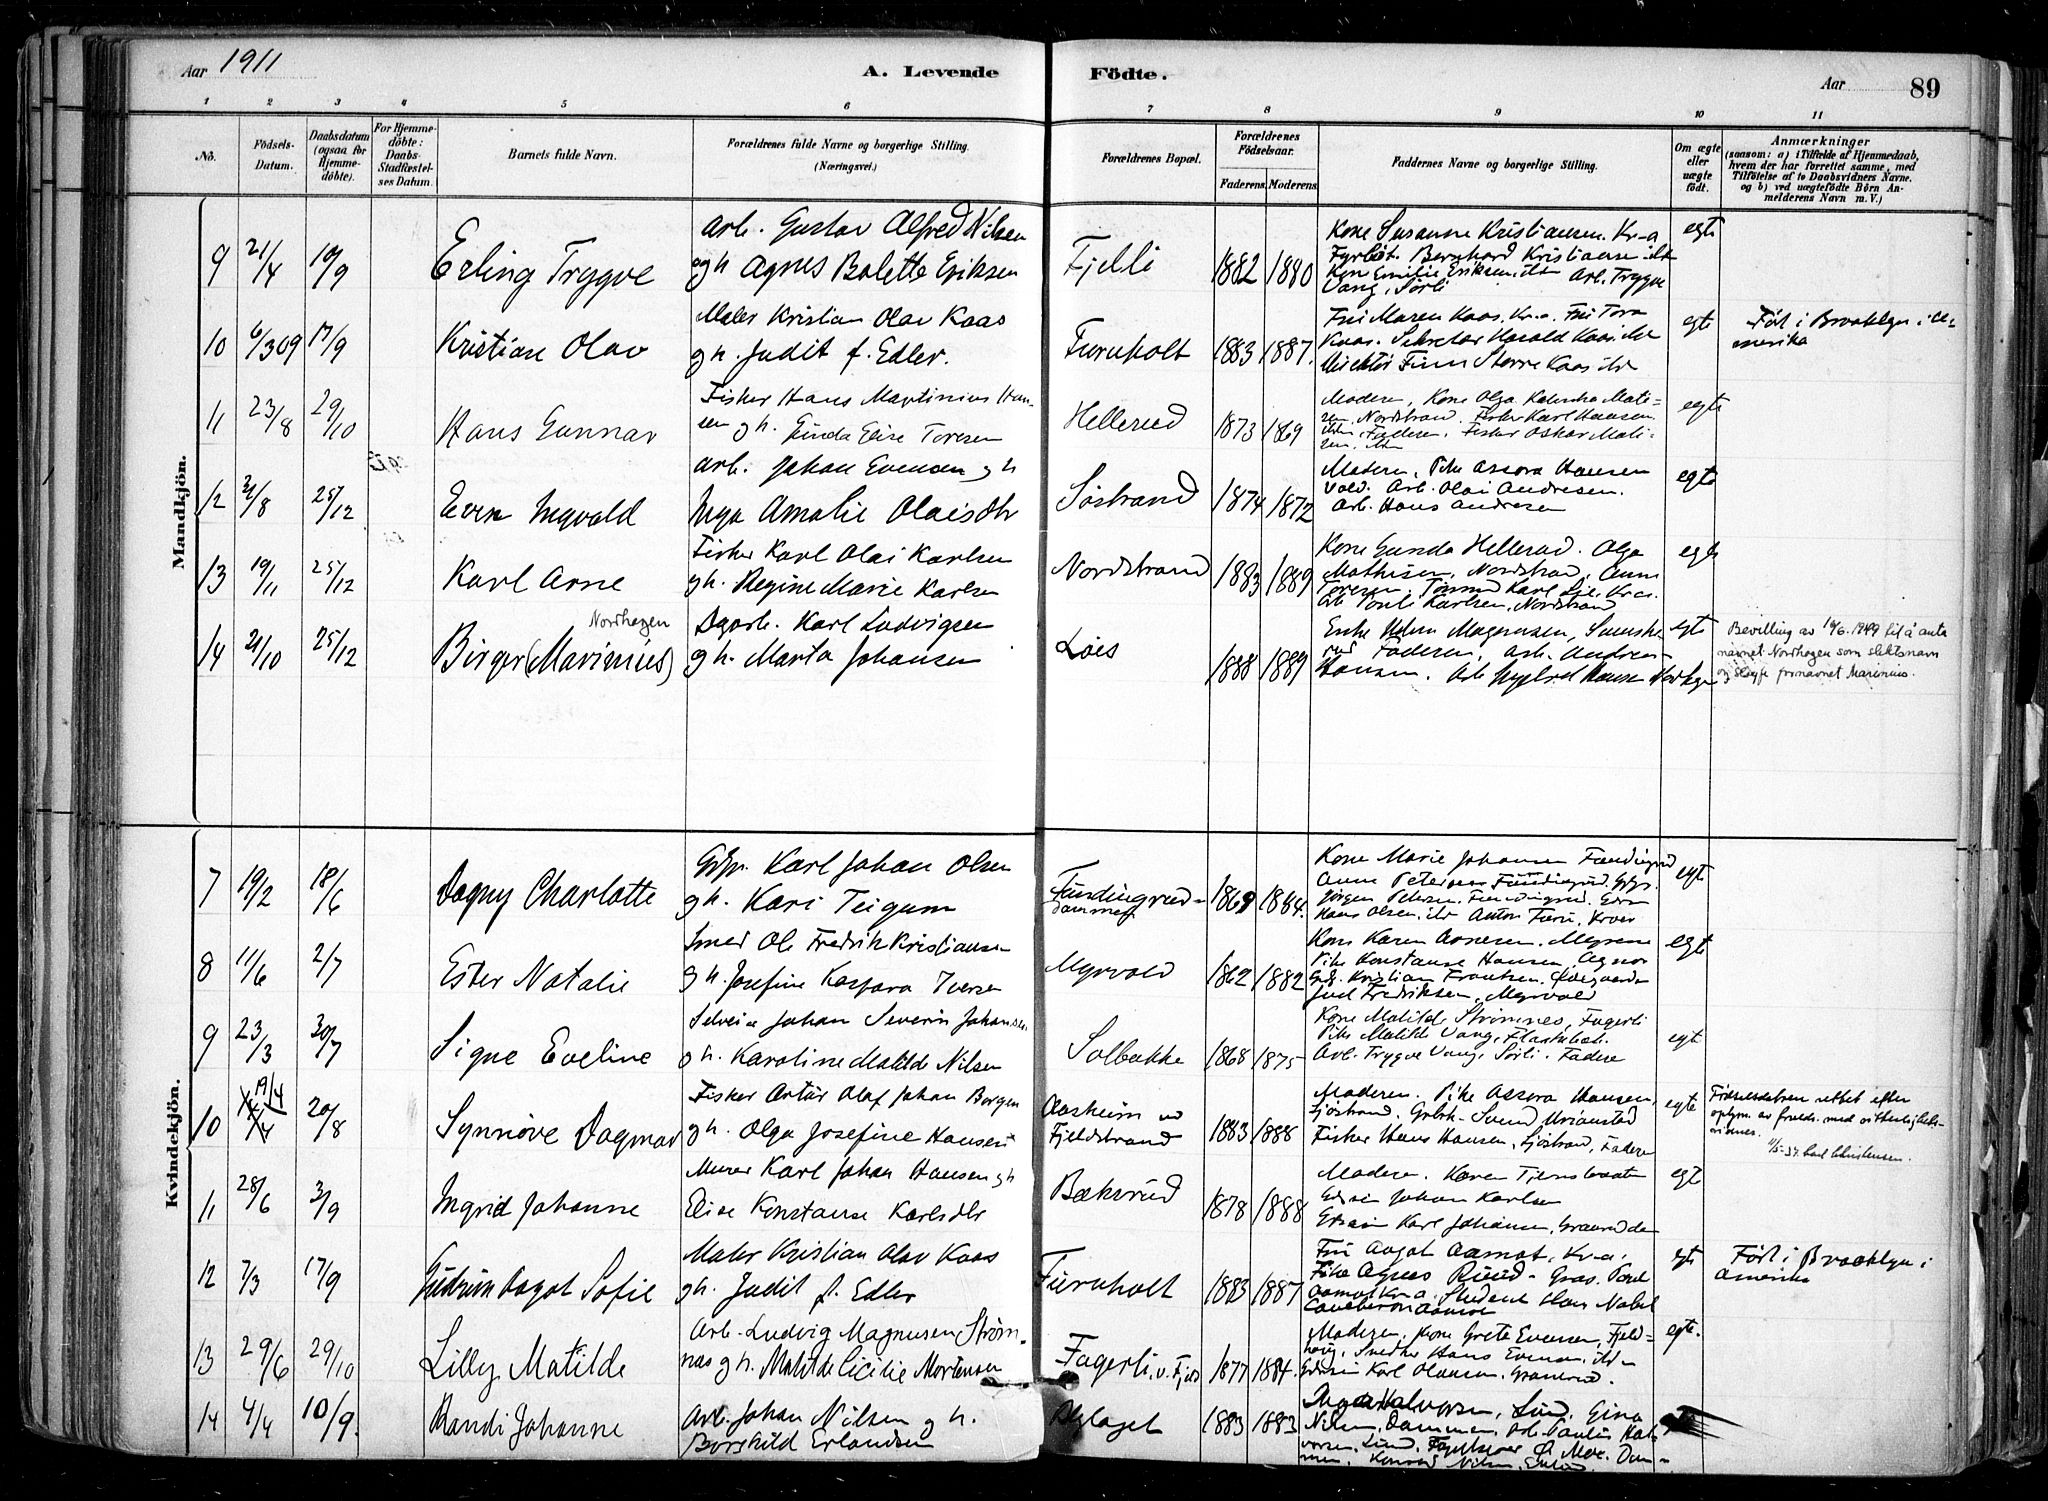 Aar 1911
A. Levende
Födte.
Aar
89
1 2 3 4 5 6 7 8 9 10 11
No.
Födsels-Datum.
Daabsdatum (ogsaa for Hjemme-döbte).
For Hjemme-döbte: Daabs-Stadfæstel-ses Datum.
Barnets fulde Navn.
Forældrenes fulde Navne og borgerlige Stilling. (Næringsvei.)
Forældrenes Bopæl.
Forældrenes Födselsaar.
Faderens. Moderens.
Faddernes Navne og borgerlige Stilling.
Om ægte eller uægte födt.
Anmærkninger
(saasom: a) i Tilfælde af Hjemmedaab, hvem der har forrettet samme, med Tilföielse af to Daabsvidners Navne. og b) ved uægtefödte Börn Anmelderens Navn m. V.)
Mandkjön.
9 21/4 10/9 Erling Trygve
Arb. Gustav Alfred Nilsen
og h. Agnes Bolette Eriksen
Fjelli 1882 1880
Kone Susanne Kristiansen. Kr-a
Fyrbøt. Bernhard Kristianse ibd
Kone Emilie Eriksen, ibd Arb. Trygve
Vang, Sørli
egte
10 6/3 09 17/9 Kristian Olav
Maler Kristian Olav Kaas
g h. Judit f. Edler.
Furuholt 1883 1887.
Frü Maren Kaas. Kr.a. Frü Tora
Kaas. Sekretær Harald Kaas ibd
Direktör Finn Större Kaas ibd
egte
Født i Brooklyn i A-
merika
11 23/8 29/10 Hans Gunnar
Fisker Hans Martinius Han-
sen g h. Gunda Elise Toresen
Hellerud 1873 1869
Moderen, Kone Olga Mati-
sen Nordstrand. Fisker Karl Hansen
ibd. Faderen. Fisker Oskar Mati-
sen, ibd
egte
12 31/8 25/12 Even Ingvald
Arb. Johan Evensen g h
Inga Amalie Olaisdtr
Sjøstrand 1874 1872
Moderen, Pike Assora Hansen
Arb. Olai Andresen.
Arb. Hans Andresen
egte
13 19/11 25/12 Karl Arne
Fisker Karl Olai Karlsen
g h. Regine Marie Karlsen
Nordstrand 1883 1889
Kone Gunda Hellerud. Olga
Mathisen, Nordstrand, Anna
Toresen, Karl Lie, Kr.a.
Arb. Karlsen, Nordstrand
egte
14 21/10 25/12 Birger (Marinius)
Nordhagen
Dgarb. Karl Ludvigsen
g h. Marta Johansen
Løes 1888 1889
Enke Magnussen, Svenske-
rud Faderen, Arb. Andreas
Hansen. Arb Hansen
egte
Bevilling av 14/6. 1949 til å anta
navnet Nordhagen som slektsnavn
og sløyfe fornavnet Marinius.
Kvindekjön.
7 19/2 18/6 Dagny Charlotte
Gbr. Karl Johan Olsen
g h. Kari Teigum
Fundingrud-
dammen 1869 1884.
Kone Marie Johansen Fundingrud
Anna Petersen Fundingrud. Gbr.
Jörgen Petersen, Fundingrud.
Hans Olsen, ibd Anton Færu, Kroer
egt
8 11/6 2/7 Ester Natalie
Smed Ole Fredrik Kristiansen
g h. Josefine Kaspara Iversen
Myrvold 1862 1882
Kone Karen Arnesen. Myrene
Pike Konstanse Hansen, Agnor
Gbr. Kristian Frantsen,
Juul Fredriksen, Myrvold
egte
9 23/3 30/7 Signe Eveline
Selveier Johan Severin Johansen
g h. Karoline Matilde Nilsen
Solbakke 1868 1875
Kone Matilde Strömnes, Fagerli
Pike Matilde Vang,
Arb. Trygve Vang, Sørli. Fadere
egt
10 19/4 20/8 Synnöve Dagmar
Fisker Artür Olaf Johan Borgen
g h. Olga Josefine Hansen
Aasheim ved
Fjeldstrand 1883 1888
Moderen. Pike Assora Hansen,
Sjöstrand,
Fisker Hans Hansen, Sjöstrand, Fadere
egte
Fødselsdatoen rettet efter
oplysn. av foreldr. med vitterlighets-
vidner.
11/5-34. Carl Christensen.
11 28/6 3/9 Ingrid Johanne
Murer Karl Johan Hansen g h
Elise Konstanse Karlsdtr
Bækerud 1878 1888
Moderen. Karen
Johan Karlsen
Karl Johansen, Granerud
egt
12 7/3 17/9 Gudrun Aagot Sofie
Maler Kristian Olav Kaas
g h. Judit f. Edler
Furuholt 1883 1887
Frü Aagot Aamot, Kr-a.
Pike Agnes Ruud -
Aamot Kr-a. Student Hans Nobel
egt
Født i Brooklyn i
Amerika
13 29/6 29/10 Lilly Matilde
Arb. Ludvig Magnusen Strøm-
næs g h. Matilde Cicilie Mortensen
Fagerli. v. Fjeld 1877 1884.
Moderen. Kone Grete Evensen, Fjeld-
Snedker Hans Evensen, ibd
Karl Olausen. Granerud.
egte.
14 4/4 10/9. Randi Johanne
Arb. Johan Nilsen g h.
Borghild Erlandsen
Nylaget 1883 1883
Inga Halvorsen, Lund. Gina
Nilsen, Dammen, Arb. Paulus Hal-
vorsen, Lund, Moe. Dam-
men. Konrad Nilsen,